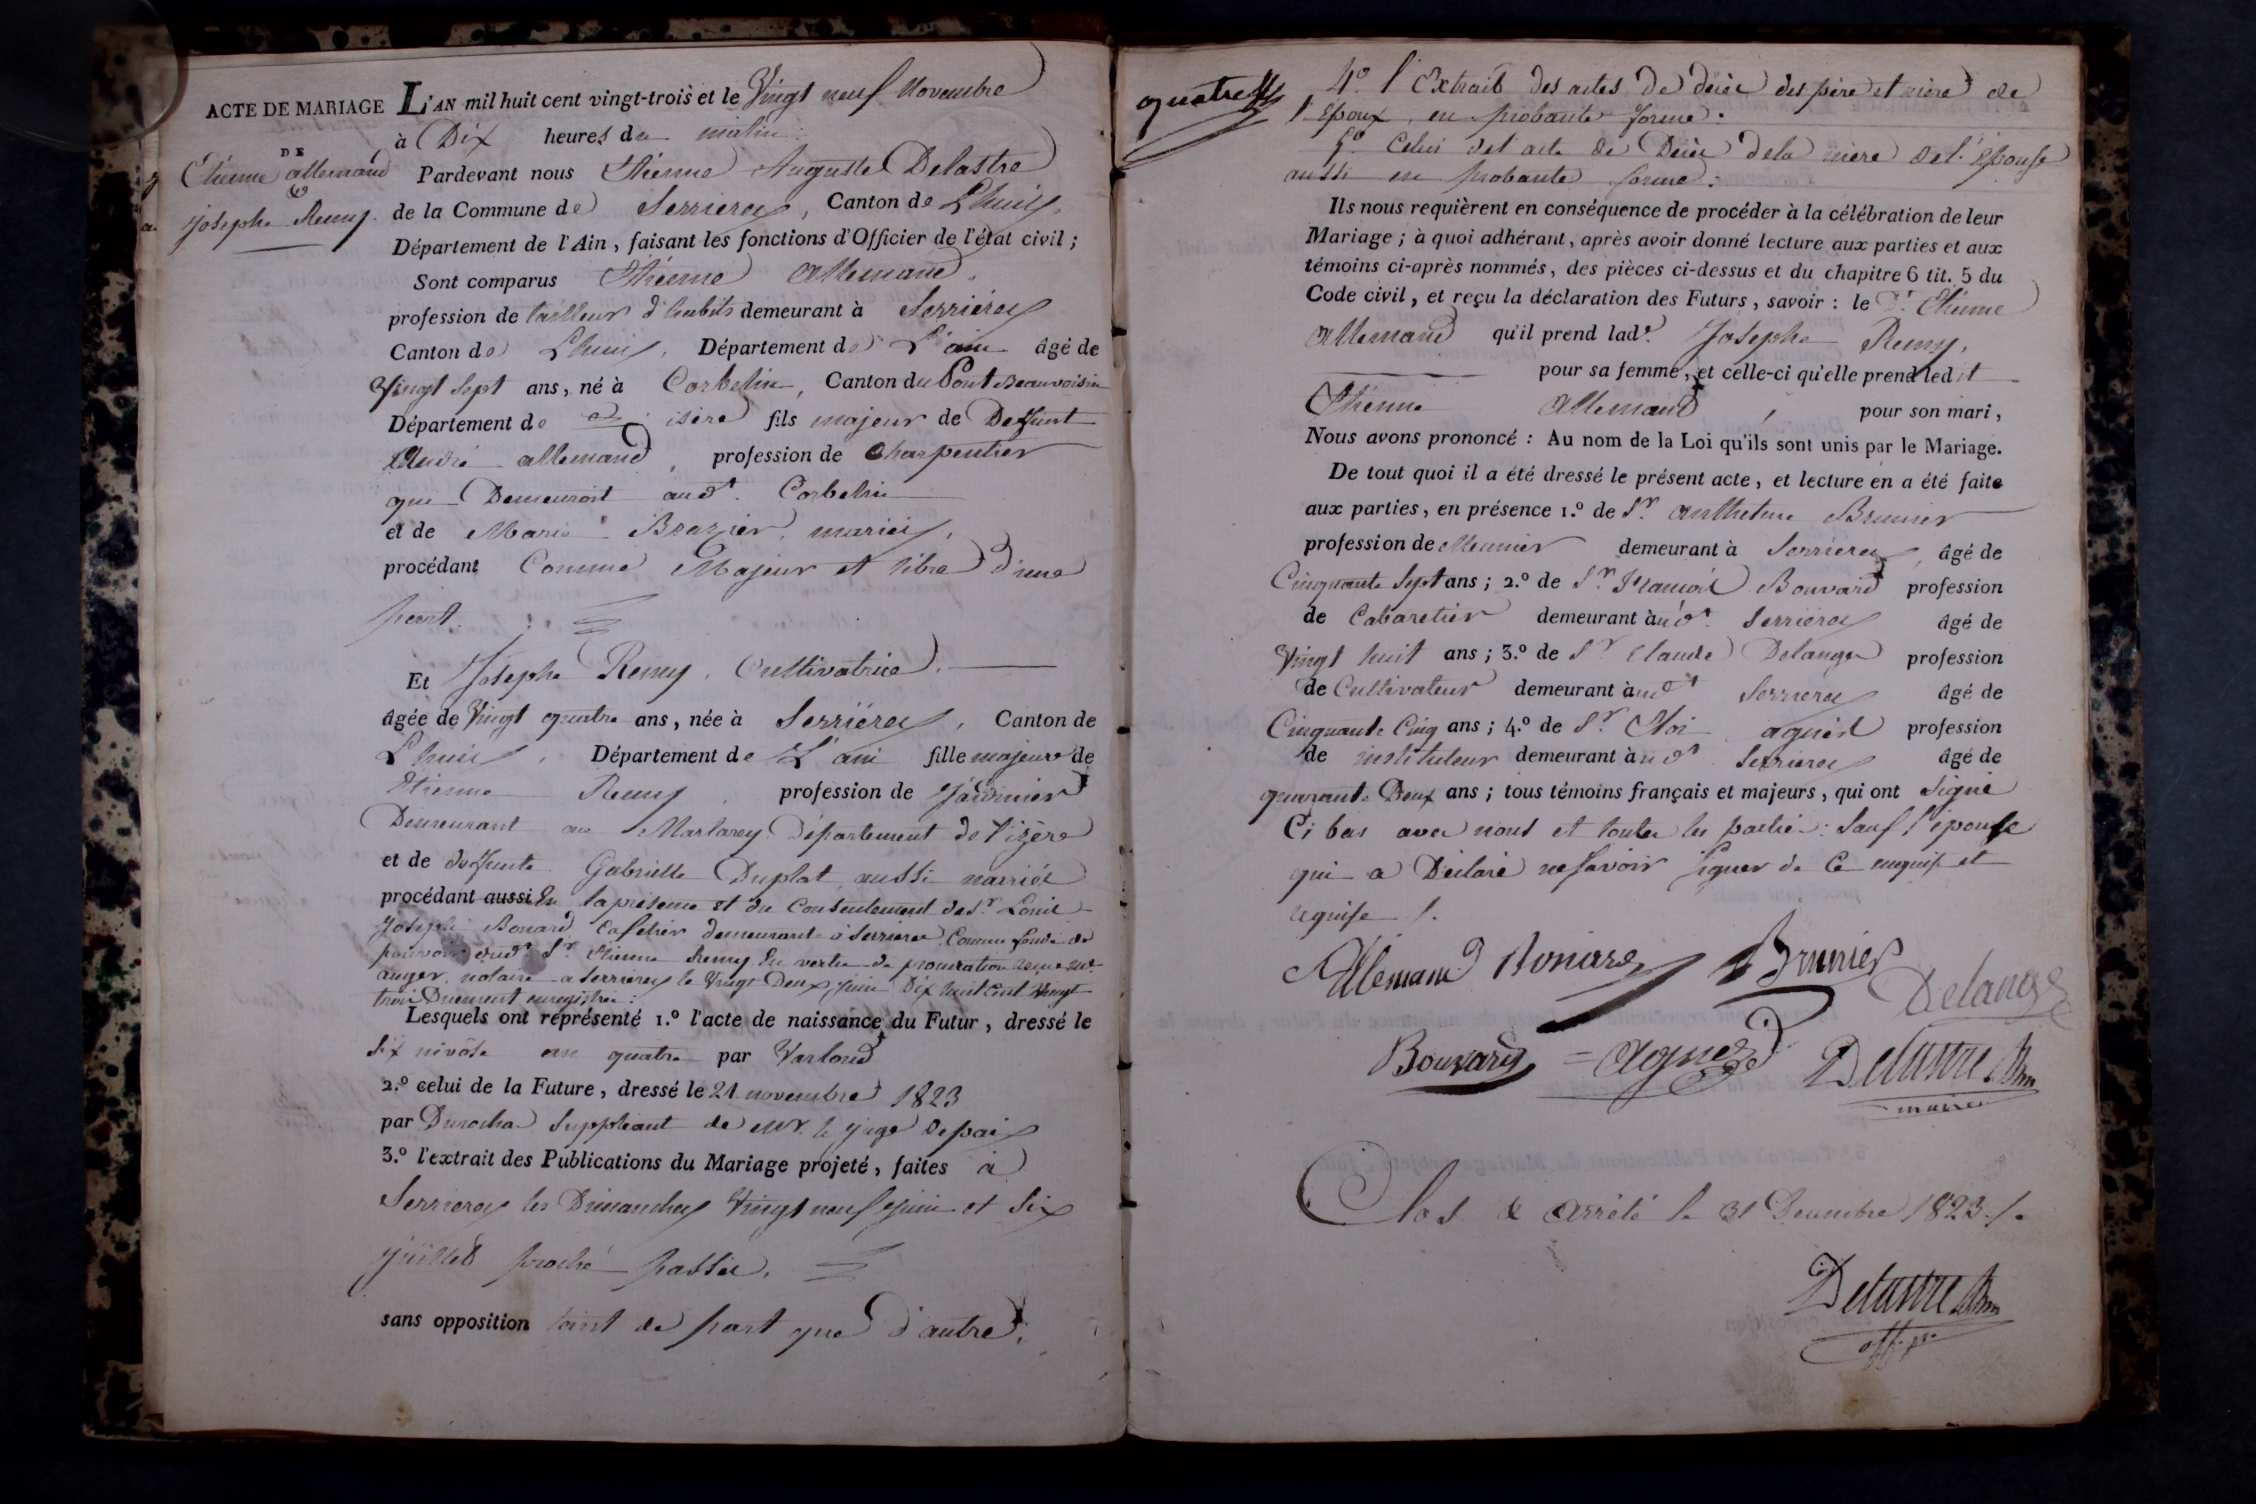 ACTE DE MARIAGE
DE
Etienne allemand
&
josephe Remy.
L'AN mil huit cent vingt-trois et le Vingt neuf Novembre
à Dix heures du matin
Pardevant nous Etienne Auguste Delastre
de la Commune de Serrieres, Canton de Lhuis,
Département de l'Ain, faisant les fonctions d'Officier de l'état civil ;
Sont comparus Etienne Allemand,
profession de tailleur d'habits demeurant à Serriéres
Canton de Lhuis, Département de L'ain âgé de
Vingt Sept ans, né à Corbelin, Canton du Pont Beauvoisin
Département de isère fils majeur de Deffunt
André allemand, profession de Charpentier
qui Demeuroit aud.t Corbelin
et de Marie Brazier, mariés,
procédant Comme Majeur et libre d'une
part.
Et Josephe Remy, Cultivatrice.
âgée de Vingt quatre ans, née à Serriéres, Canton de
Lhuis, Département de L'ain fille majeure de
Etienne Remy, profession de Jardinier
Demeurant au Département de l'izère
et de deffunte Gabrielle Duplat aussi mariés
procédant aussi En la présence et du Consentement de S.r Louis
Joseph Bonard Cafetier demeurant à Serrieres Comme fondé de
pouvoir dud.t S.r Etienne Remy En vertu de procuration reçue M.e
auger, notaire a Serrieres le Vingt Deux juin Dix huit Cent Vingt
trois Duement enregistrée :
Lesquels ont représenté 1.º l'acte de naissance du Futur, dressé le
Six nivôse an quatre par Varloud
2.º celui de la Future, dressé le 21 novembre 1823
par Durochat Suppléant de Mr. le juge Depaix
3.º l'extrait des Publications du Mariage projeté, faites à
Serrieres les Dimanches Vingt neuf juin et Six
juillet proche passés.
sans opposition tant de part que d'autre.
quatre
4º l'Extrait des actes de décès des père et mère de
l'Epoux, en probante forme.
5º Celui det acte de Décès dela mere del'épouse
aussi en probante forme :
Ils nous requièrent en conséquence de procéder à la célébration de leur
Mariage ; à quoi adhérant, après avoir donné lecture aux parties et aux
témoins ci-après nommés, des pièces ci-dessus et du chapitre 6 tit. 5 du
Code civil, et reçu la déclaration des Futurs, savoir : le d.t Etienne
Allemand qu'il prend lad.e Josephe Remy,
pour sa femme, et celle-ci qu'elle prend ledit
Etienne Allemand, pour son mari,
Nous avons prononcé : Au nom de la Loi qu'ils sont unis par le Mariage.
De tout quoi il a été dressé le présent acte, et lecture en a été faite
aux parties, en présence 1.º de S.r anthelme Brunier
profession de Meunier demeurant à Serrieres, âgé de
Cinquante Sept ans ; 2.º de S.r François Bouvard profession
de Cabaretier demeurant à ud.t Serrieres âgé de
Vingt huit ans ; 3.º de S.r Claude Delange profession
de Cultivateur demeurant à ud.t Serrieres âgé de
Cinquante Cinq ans ; 4.º de S.r Eloi agniel profession
de instituteur demeurant à ud.t Serrieres âgé de
quarante Deux ans ; tous témoins français et majeurs, qui ont Signé
Ci bas avec nous et toutes les parties : Sauf l'épouse
qui a Déclaré ne Savoir Signer de Ce enquise et
requise /.
Allemand Bonard Brunier
Delange
Bouvard Delastre
maire
Clos & Arrêté le 31 Decembre 1823 /.
Delastre